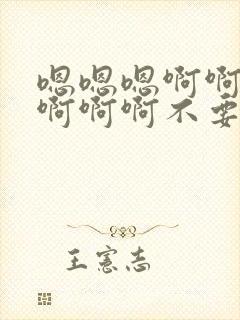 嗯嗯嗯啊啊
啊啊啊不要
王宪志